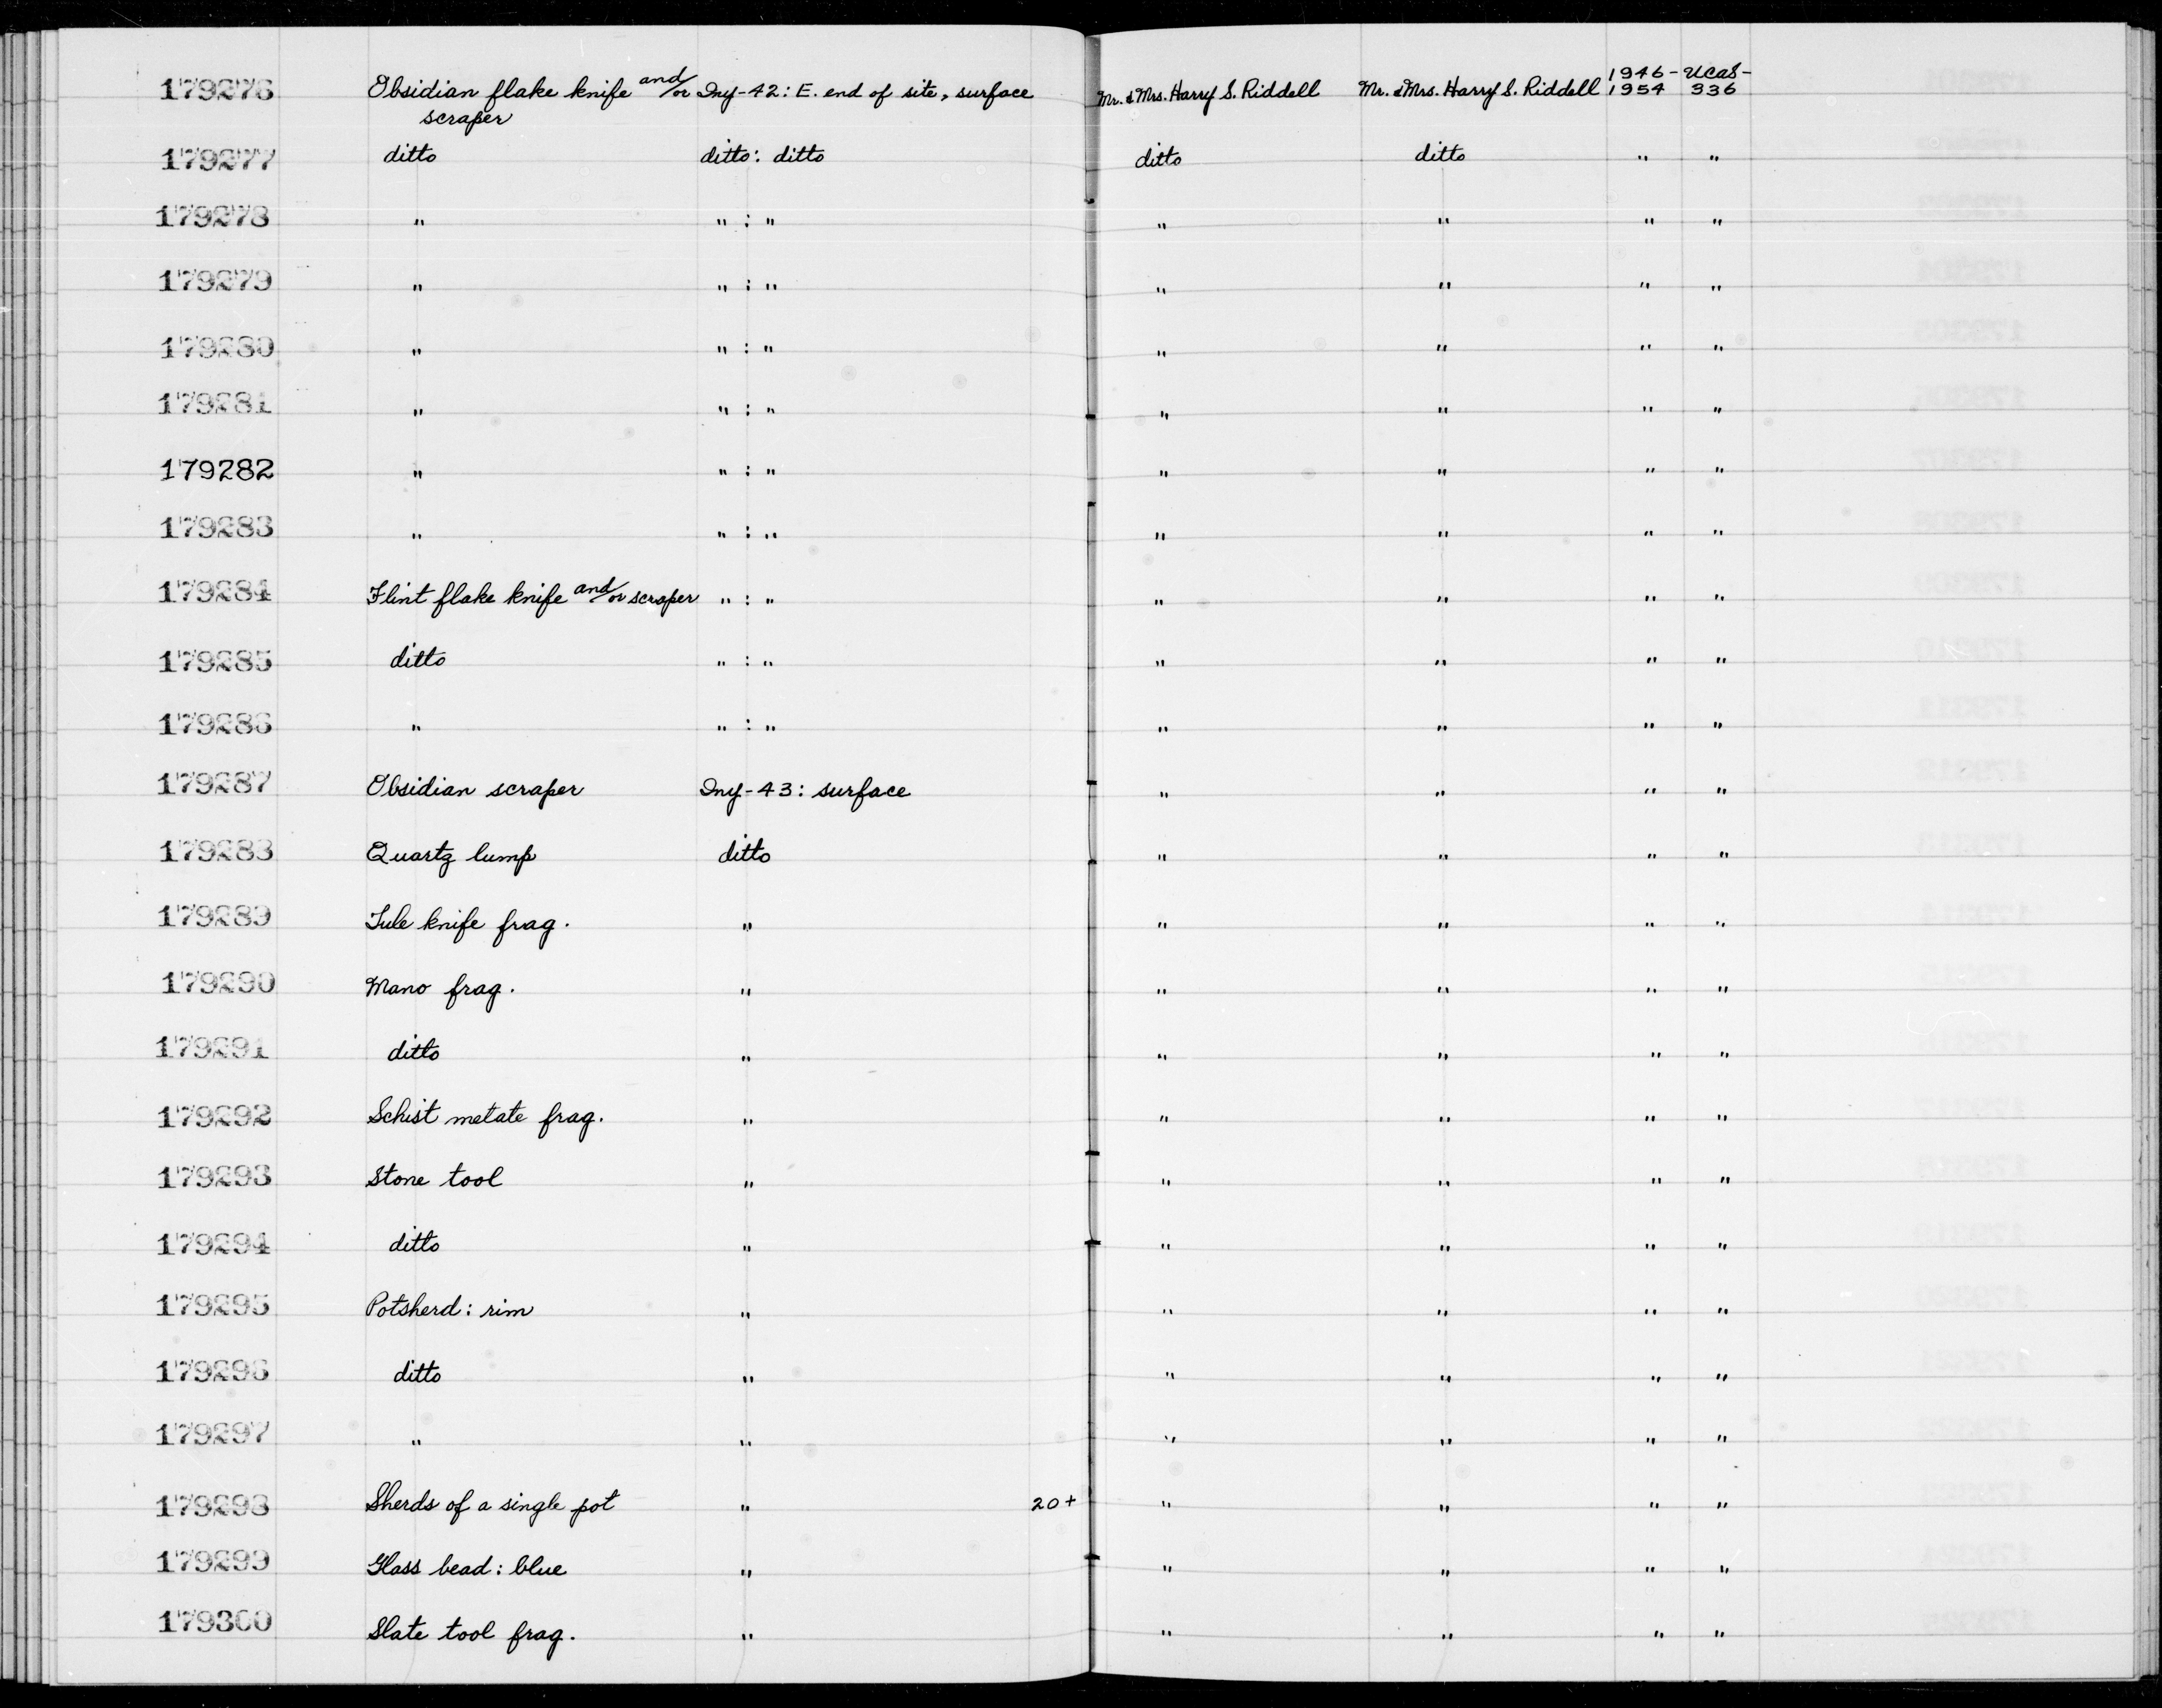 179276 Obsidian flake knife and/or Iny-42: E. end of site, surface Mr. & Mrs. Harry S. Riddell Mr. & Mrs. Harry S. Riddell 1946- UCAS-
scraper 1954 336
179277 ditto ditto: ditto ditto ditto " "
179278 " " : " " " " "
179279 " " : " " " " "
179280 " " : " " " " "
179281 " " : " " " " "
179282 " " : " " " " "
179283 " " : " " " " "
179284 Flint flake knife and/or scraper " : " " " " "
179285 ditto " : " " " " "
179286 " " : " " " " "
179287 Obsidian scraper Iny-43: surface " " " "
179288 Quartz lump ditto " " " "
179289 Tule knife frag. " " " " "
179290 Mano frag. " " " " "
179291 ditto " " " " "
179292 Schist metate frag. " " " " "
179293 Stone tool " " " " "
179294 ditto " " " " "
179295 Potsherd: rim " " " " "
179296 ditto " " " " "
179297 " " " " " "
179298 Sherds of a single pot " 20+ " " " "
179299 Glass bead: blue " " " " "
179300 Slate tool frag. " " " " "